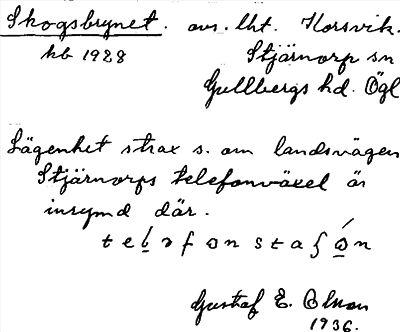 Skogsbrynet. avs. lht. Korsvik.
kb 1928 Stjärnorp sn
Gullbergs hd. Ögl
Lägenhet strax s. om landsvägen
Stjärnorps telefonväxel är
inrymd där.
Gustaf E. Olsson
1936.